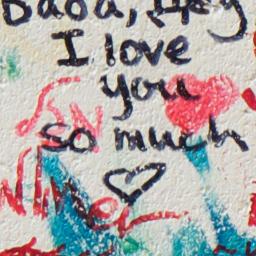 Baba, Hey
I love
you
so much